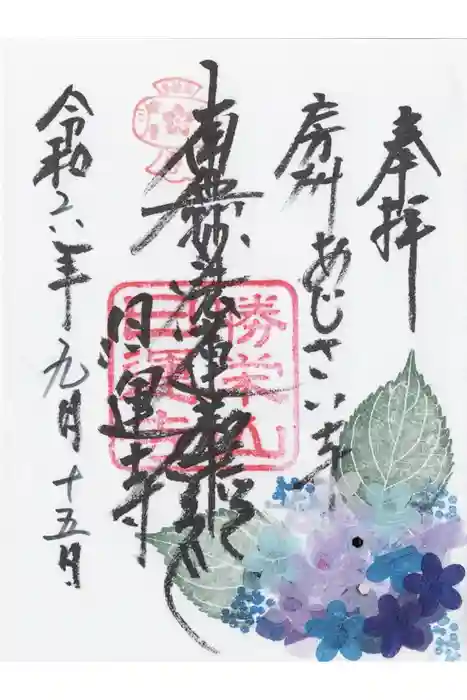 奉拝
房州あじさい寺
南無妙法蓮華経
日運寺
勝栄山
日運寺
令和六年九月十五日